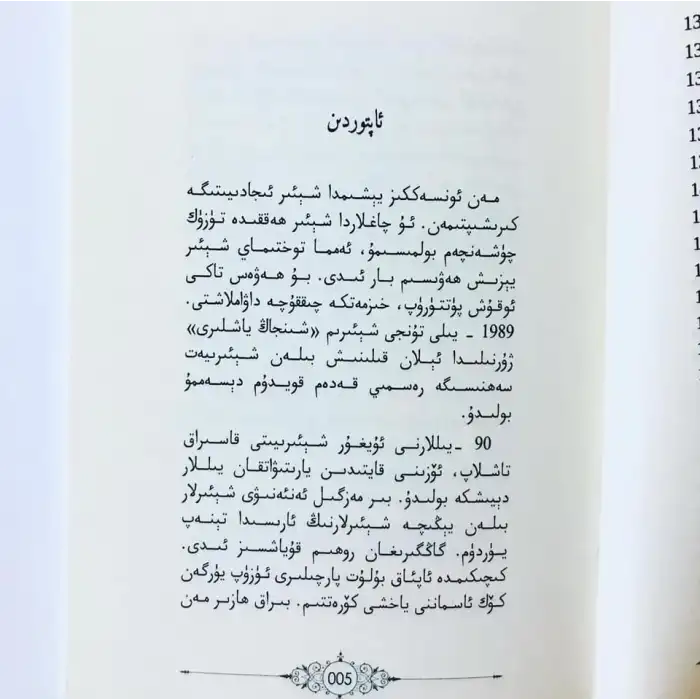 ئاپتوردىن
مەن ئونسەككىز يېشىمدا شېئىر ئىجادىيىتىگە
كىرىشىپتىمەن. ئۇ چاغلاردا شېئىر ھەققىدە تۈزۈك
چۈشەنچەم بولمىسىمۇ، ئەمما توختىماي شېئىر
يېزىش ھەۋىسىم بار ئىدى. بۇ ھەۋەس تاكى
ئوقۇش پۈتتۈرۈپ، خىزمەتكە چىققۇچە داۋاملاشتى.
1989 - يىلى تۇنجى شېئىرىم «شىنجاڭ ياشلىرى»
ژۇرنىلىدا ئېلان قىلىنىش بىلەن شېئىرىيەت
سەھنىسىگە رەسمىي قەدەم قويدۇم دېسەممۇ
بولىدۇ.
90 -يىللارنى ئۇيغۇر شېئىرىيىتى قاسىراق
تاشلاپ، ئۆزىنى قايتىدىن يارىتىۋاتقان يىللار
دېيىشكە بولىدۇ. بىر مەزگىل ئەنئەنىۋى شېئىرلار
بىلەن يېڭىچە شېئىرلارنىڭ ئارىسىدا تېنەپ
يۈردۈم. گاڭگىرىغان روھىم قۇياشسىز ئىدى.
كىچىكىمدە ئاپئاق بۇلۇت پارچىلىرى ئۈزۈپ يۈرگەن
كۆك ئاسماننى ياخشى كۆرەتتىم. بىراق ھازىر مەن
005
13
13
13
13
13
13
14
1
1
1
1
1